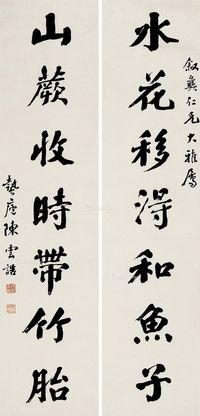 敘彝仁兄大雅屬
水花移得和魚子
山蕨收時帶竹胎
蟄廬陳雲誥